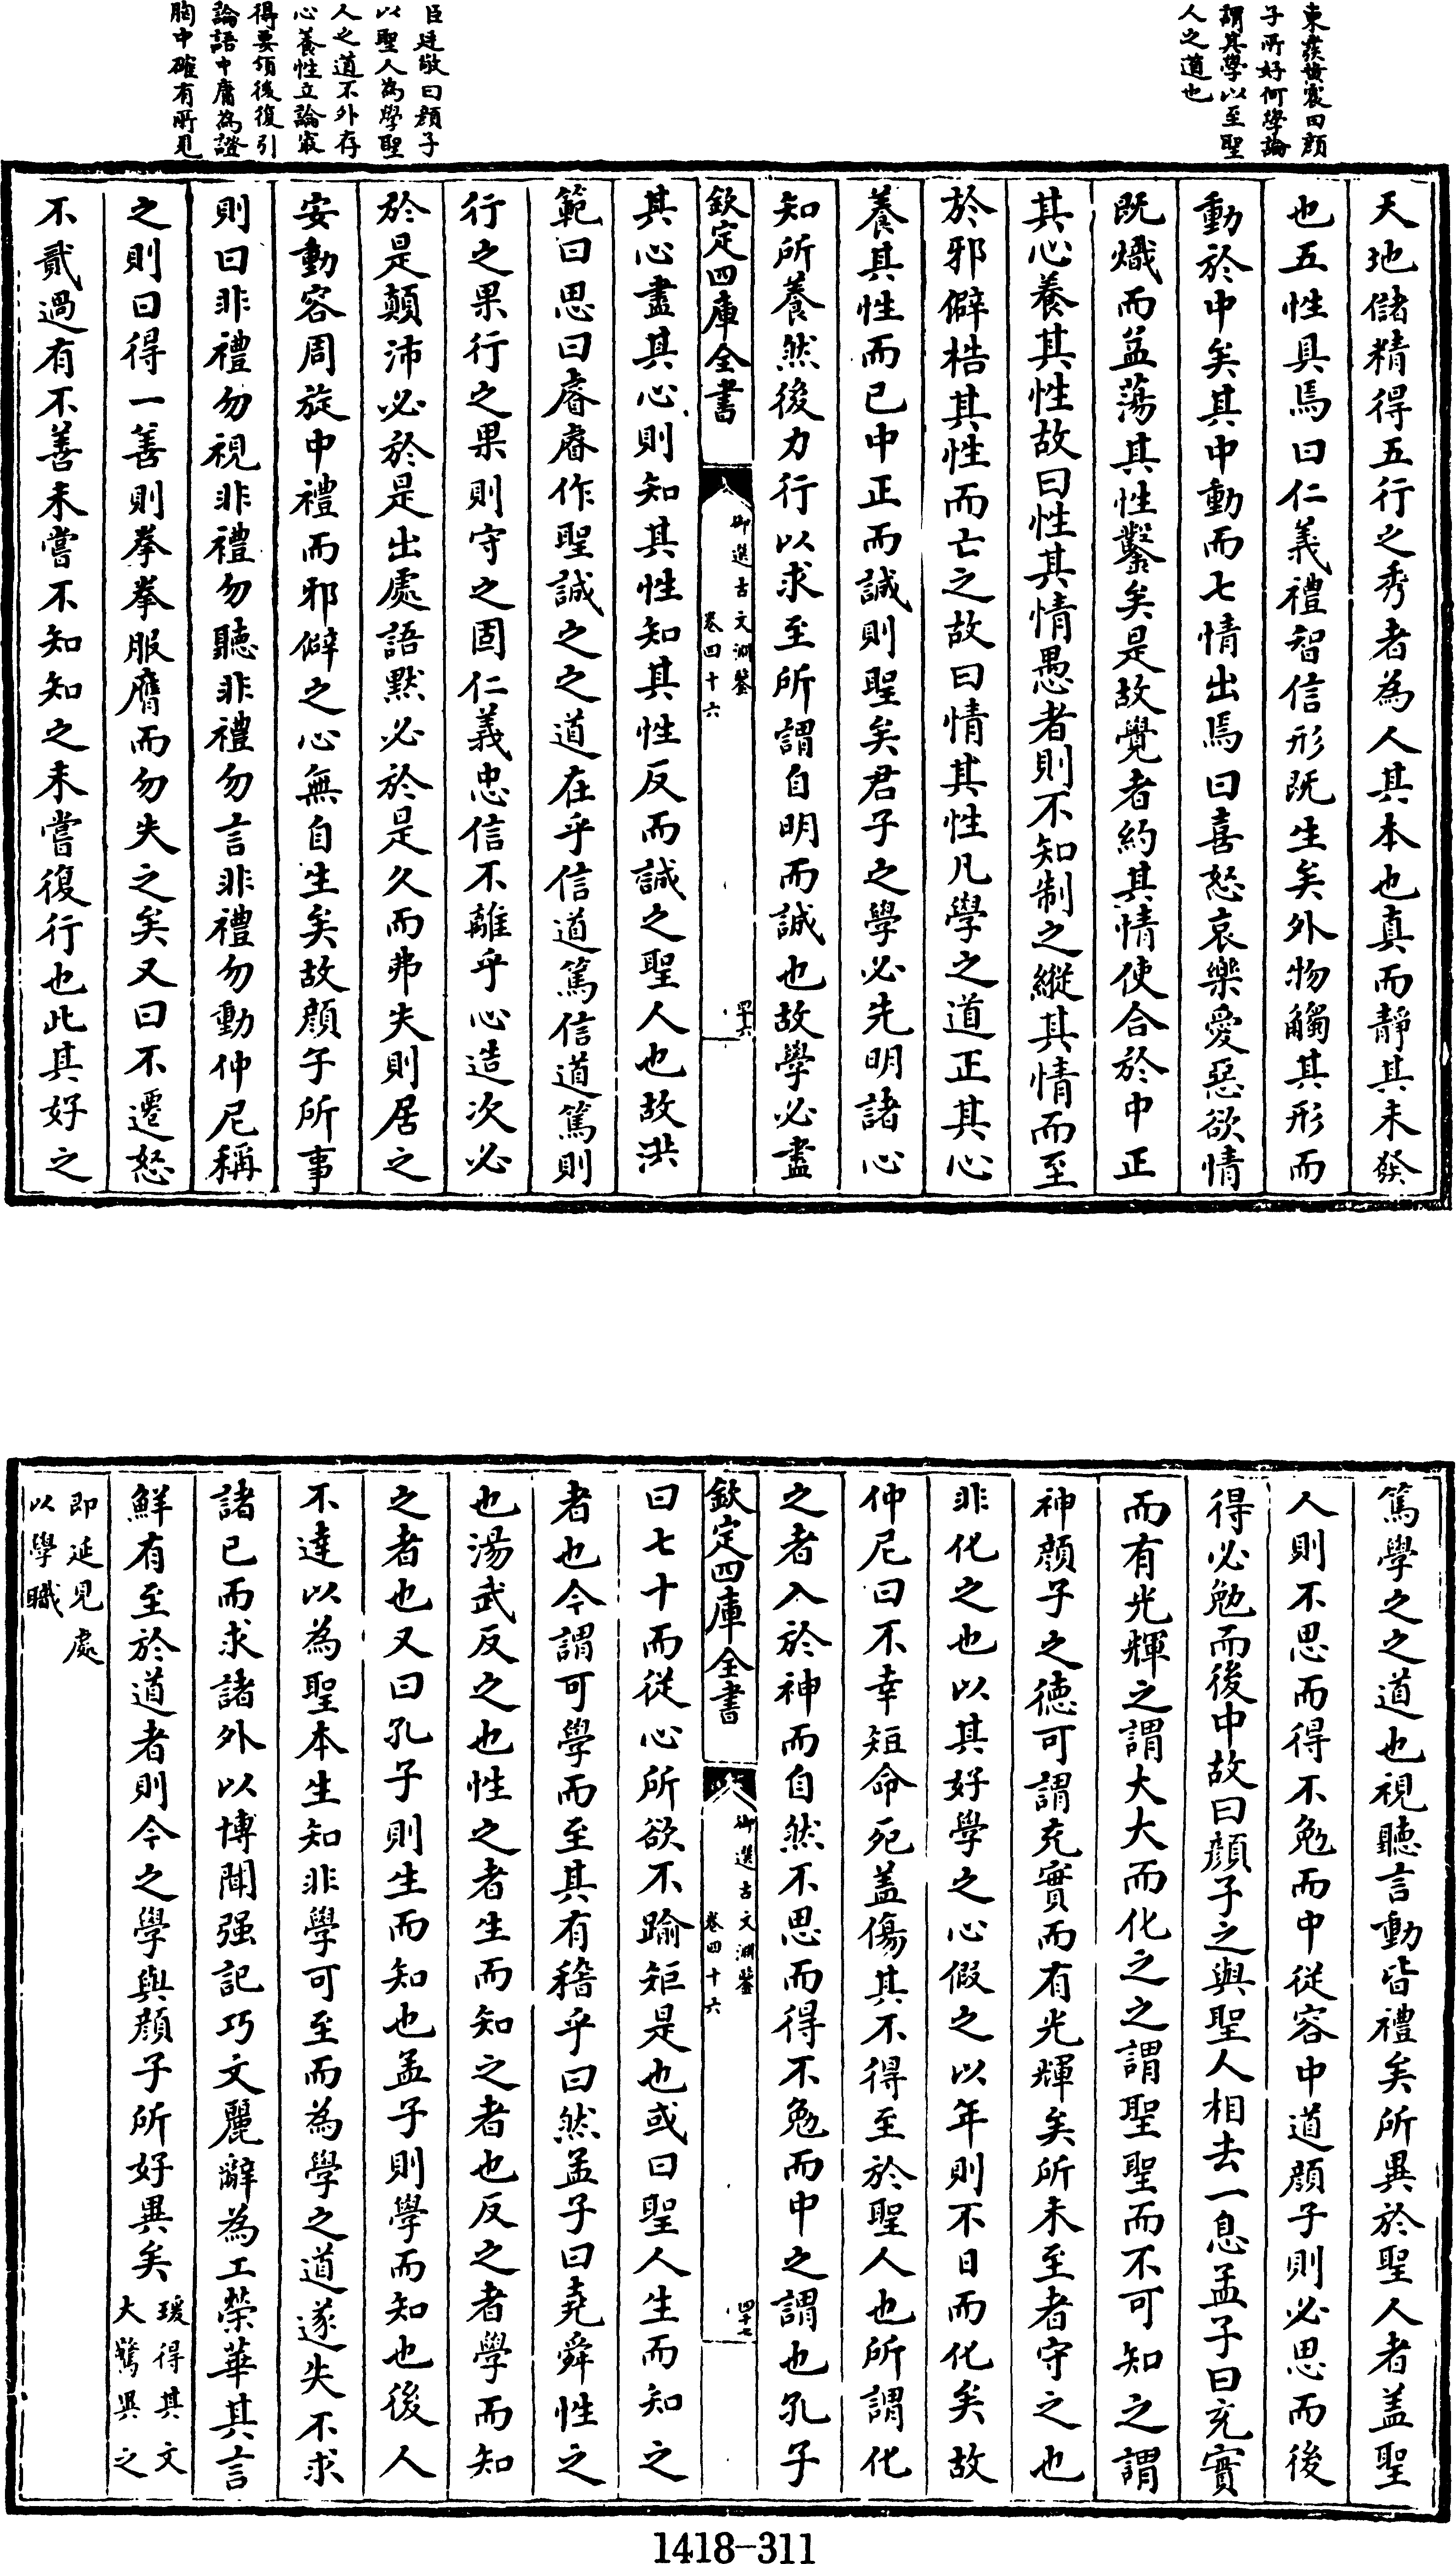 東發黃震曰顔
子所好何學論
謂其學以至聖
人之道也
臣廷敬曰顔子
以聖人為學聖
人之道不外存
心養性立論最
得要領後復引
論語中庸為證
胸中確有所見
天地儲精得五行之秀者為人其本也真而靜其未發
也五性具焉曰仁義禮智信形既生矣外物觸其形而
動於中矣其中動而七情出焉曰喜怒哀樂愛惡欲情
既熾而益蕩其性鑿矣是故覺者約其情使合於中正
其心養其性故曰性其情愚者則不知制之縱其情而至
於邪僻梏其性而亡之故曰情其性凡學之道正其心
養其性而已中正而誠則聖矣君子之學必先明諸心
知所養然後力行以求至所謂自明而誠也故學必盡
欽定四庫全書
御選古文淵鑒
卷四十六
四十六
其心盡其心則知其性知其性反而誠之聖人也故洪
範曰思曰睿睿作聖誠之之道在乎信道篤信道篤則
行之果行之果則守之固仁義忠信不離乎心造次必
於是顛沛必於是出處語默必於是久而弗失則居之
安動容周旋中禮而邪僻之心無自生矣故顔子所事
則曰非禮勿視非禮勿聽非禮勿言非禮勿動仲尼稱
之則曰得一善則拳拳服膺而勿失之矣又曰不遷怒
不貳過有不善未嘗不知知之未嘗復行也此其好之
篤學之之道也視聽言動皆禮矣所異於聖人者盖聖
人則不思而得不勉而中從容中道顔子則必思而後
得必勉而後中故曰顔子之與聖人相去一息孟子曰充實
而有光輝之謂大大而化之之謂聖聖而不可知之謂
神顔子之德可謂充實而有光輝矣所未至者守之也
非化之也以其好學之心假之以年則不日而化矣故
仲尼曰不幸短命死盖傷其不得至於聖人也所謂化
之者入於神而自然不思而得不勉而中之謂也孔子
欽定四庫全書
御選古文淵鑒
卷四十六
四十七
曰七十而從心所欲不踰矩是也或曰聖人生而知之
者也今謂可學而至其有稽乎曰然孟子曰堯舜性之
也湯武反之也性之者生而知之者也反之者學而知
之者也又曰孔子則生而知也孟子則學而知也後人
不達以為聖本生知非學可至而為學之道遂失不求
諸已而求諸外以博聞强記巧文麗辭為工榮華其言
鮮有至於道者則今之學與顔子所好異矣瑗得其文
大驚異之
即延見處
以學職
1418-311